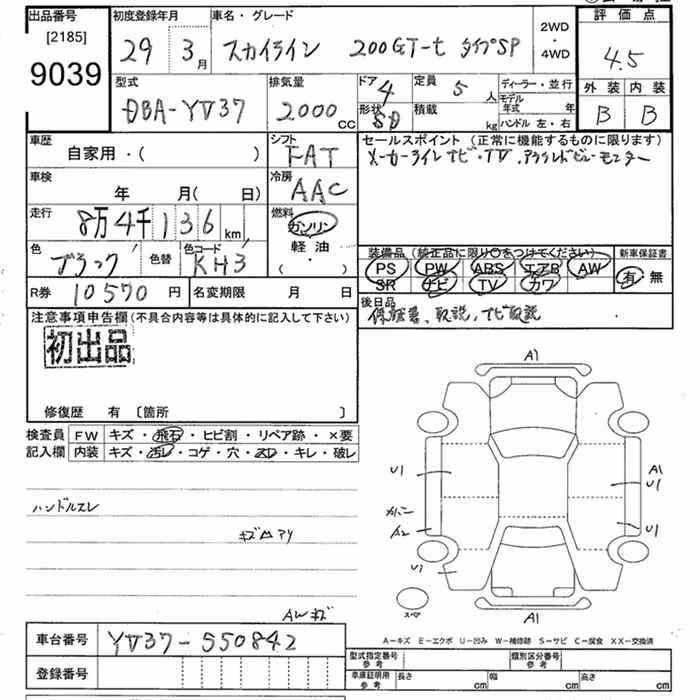 出品番号
[2185]
9039
初度登録年月
29 3月
車名・グレード
スカイライン 200GT-t タイプSP
2WD
・
4WD
評価点
4.5
外装 内装
B B
型式
DBA-YV37
排気量
2000cc
ドア
4
形状
SD
定員
5人
積載
kg
ディーラー・並行
モデル年式 年
ハンドル 左・右
車歴
自家用・( )
シフト
FAT
セールスポイント(正常に機能するものに限ります)
メーカーラインナビ・TV、アラウンドビューモニター
車検
年 月(日)
冷房
AAC
走行
8万4千136km
燃料
ガソリン
軽油
( ・ )
色
ブラック
色替
色コード
KH3
装備品(純正品に限り○をつけてください)
PS PW ABS エアB AW
SR ナビ TV カワ
新車保証書
有 無
R券
10570円
名変期限 月 日
後日品
保証書、取説、ナビ取説
注意事項申告欄(不具合内容等は具体的に記入して下さい)
初出品
修復歴 有 〔箇所 〕
検査員記入欄
FW キズ・飛石・ヒビ割・リペア跡・×要
内装 キズ・汚レ・コゲ・穴・スレ・キレ・破レ
ハンドルスレ
キズ凹アリ
AWキズ
A1
U1
A1
U1
カバー
A2
U1
U1
スペア
A1
A−キズ E−エクボ U−凹み W−補修跡 S−サビ C−腐食 XX−交換済
車台番号
YV37-550842
登録番号
型式指定番号
参考
類別区分番号
参考
車庫証明用
参考
長さ cm
幅 cm
高さ cm